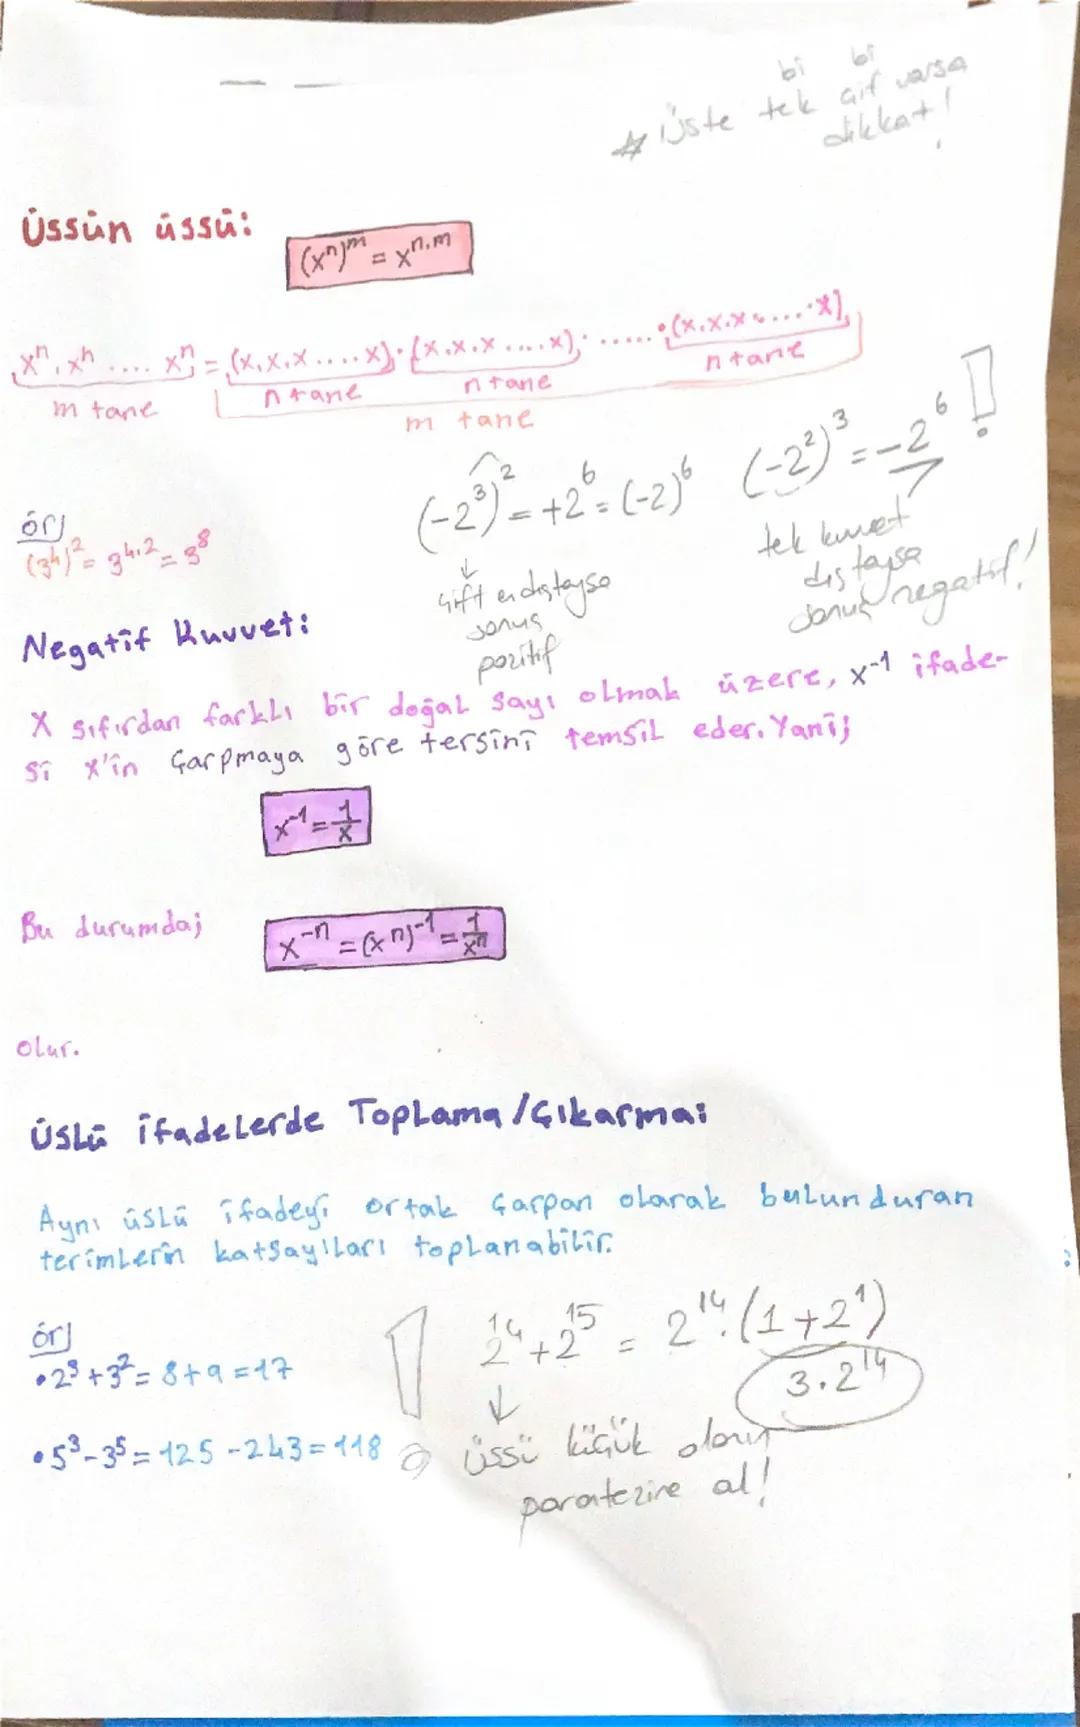 bi bi
* üste tek çift varsa
dikkat!
Üssün üssü:
(xⁿ)ᵐ = xⁿ·ᵐ
xⁿ.xⁿ .... xⁿ = (x.x.x....x).(x.x.x....x). ..... .(x.x.x.....x)
m tane n tane n tane n tane
m tane
(-2³)² = +2⁶ = (-2)⁶ (-2²)³ = -2⁶ !
örj
(3⁴)² = 3⁴·² = 3⁸
↓
çift en dıştaysa
sonuç
pozitif
tek kuvvet
dıştaysa
sonuç negatif!
Negatif Kuvvet:
X sıfırdan farklı bir doğal sayı olmak üzere, x⁻¹ ifade-
si x'in çarpmaya göre tersini temsil eder. Yani;
x⁻¹ = 1/x
Bu durumda;
x⁻ⁿ = (xⁿ)⁻¹ = 1/xⁿ
olur.
Üslü ifadelerde Toplama/Çıkarma:
Aynı üslü ifadeyi ortak çarpan olarak bulunduran
terimlerin katsayıları toplanabilir.
örj
•2³+3² = 8+9 = 17
•5³-3⁵ = 125-243 = 118
2¹⁴+2¹⁵ = 2¹⁴.(1+2¹)
3.2¹⁴
↓
üssü küçük olanı
parantezine al!